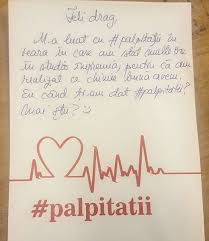 Feti drag,
M-a luat cu #palpitatii în
seara în care am stat multe ore
în studio împreună, pentru că am
realizat ce chimie bună avem.
Eu când ți-am dat #palpitatii?
Mai știi? :)
#palpitatii